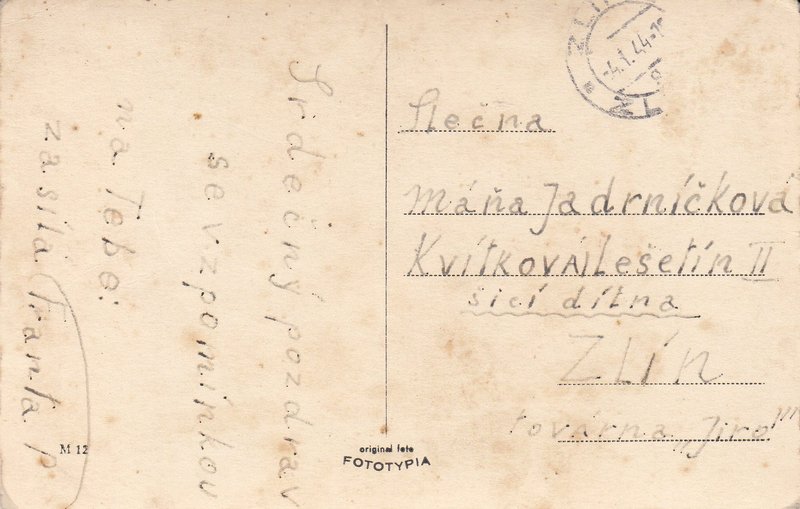 Srdečný pozdrav
se vzpomínkou
na Tebe:
zasílá Franta p.
M 12
original foto
FOTOTYPIA
ZLÍN
-4.1.44-
Slečna
Máňa Jadrníčková
Kvítková Lešetín II
šicí dítna
ZLÍN
továrna „Jiro"